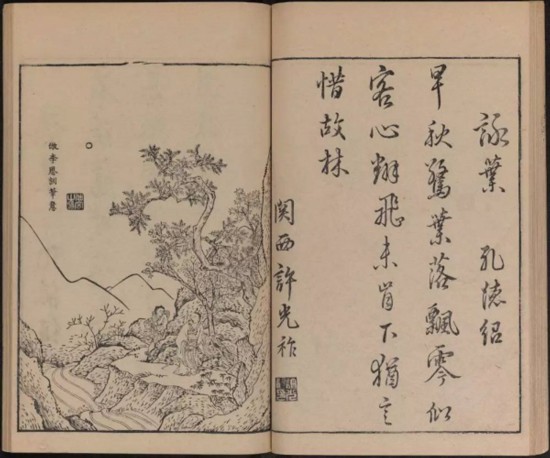 詠葉 孔德紹
早秋驚葉落飄零似
客心翻飛未肯下猶言
惜故林
関西許光祚
倣李思訓筆意